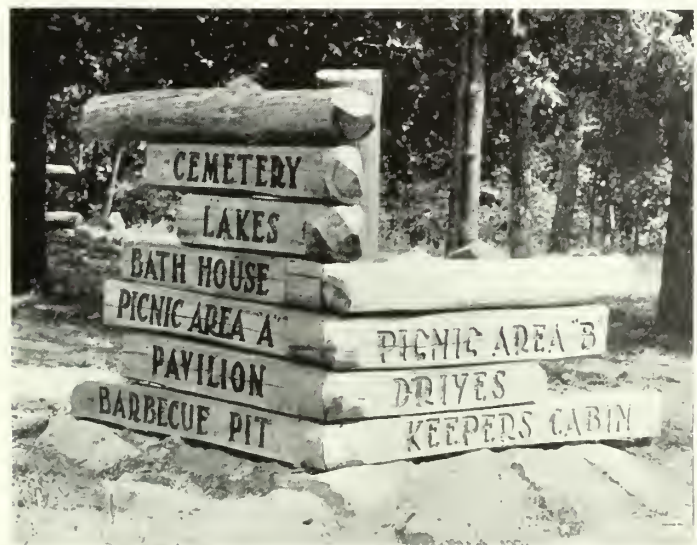 CEMETERY
LAKES
BATH HOUSE
PICNIC AREA "A"
PAVILION
BARBECUE PIT
PICNIC AREA "B"
DRIVES
KEEPERS CABIN